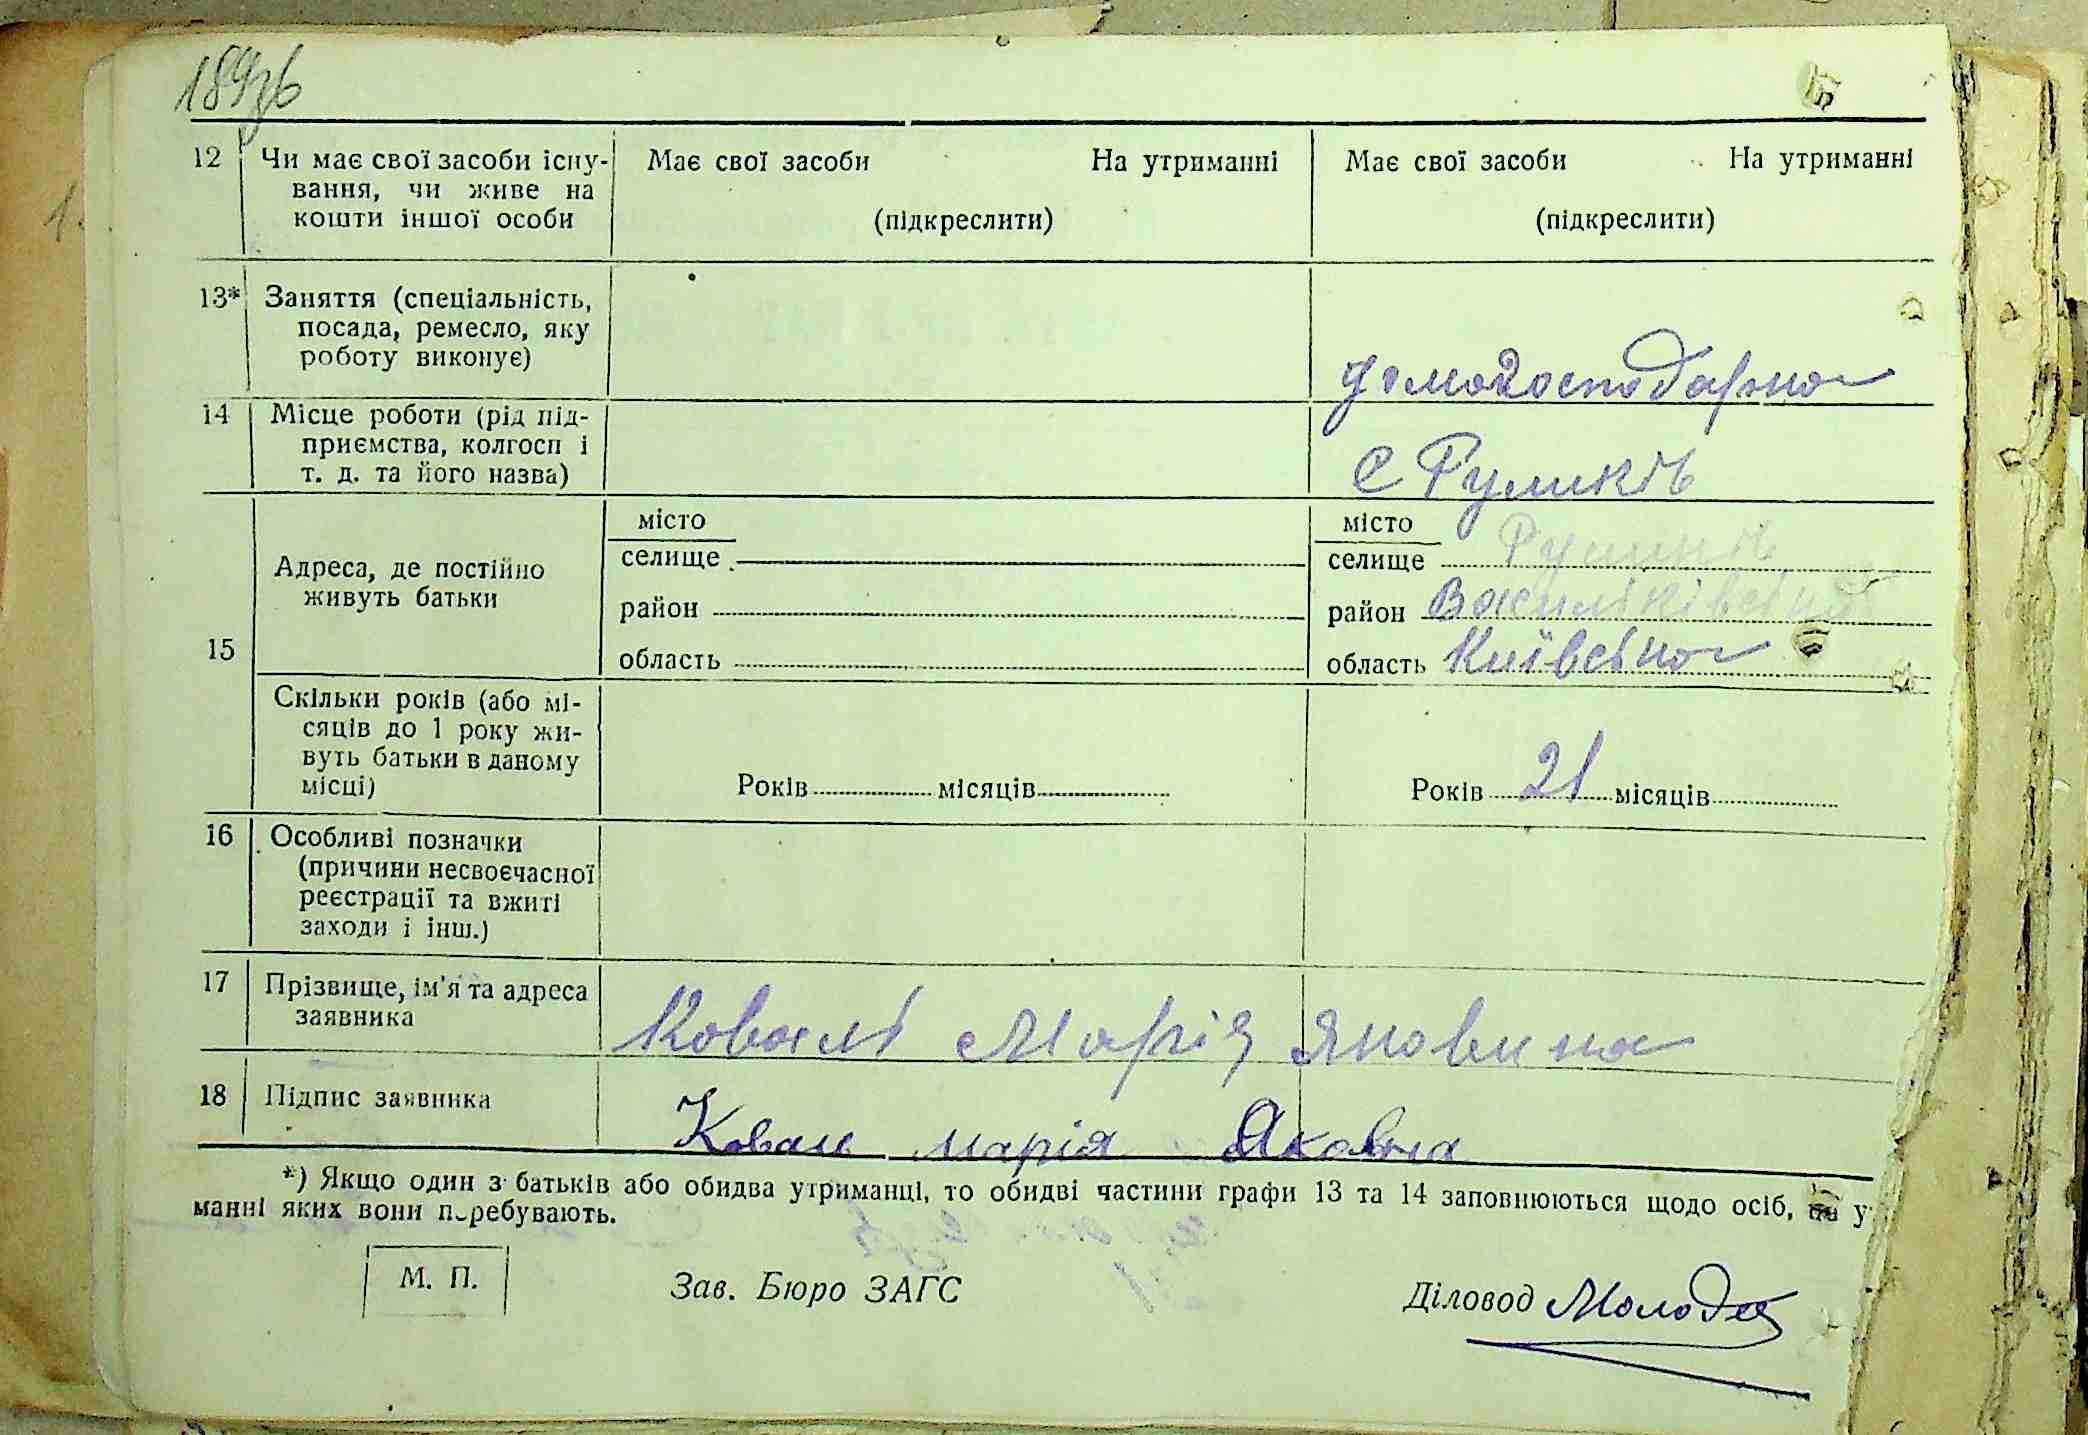 189зв
12 Чи має свої засоби існу- Має свої засоби На утриманні Має свої засоби На утриманні
вання, чи живе на
кошти іншої особи (підкреслити) (підкреслити)
13* Заняття (спеціальність,
посада, ремесло, яку
роботу виконує) домогосподарка
14 Місце роботи (рід під-
приємства, колгосп і
т. д. та його назва) С Руликів
15
Адреса, де постійно
живуть батьки
місто
селище
район
область
місто
селище Руликів
район Васильківський
область Київська
Скільки років (або мі-
сяців до 1 року жи-
вуть батьки в даному
місці) Років місяців Років 21 місяців
16 Особливі позначки
(причини несвоєчасної
реєстрації та вжиті
заходи і інш.)
17 Прізвище, ім'я та адреса
заявника Коваль Марія Яковина
18 Підпис заявника Коваль марія Яковна
*) Якщо один з батьків або обидва утриманці, то обидві частини графи 13 та 14 заповнюються щодо осіб, на у
манні яких вони перебувають.
М. П. Зав. Бюро ЗАГС Діловод